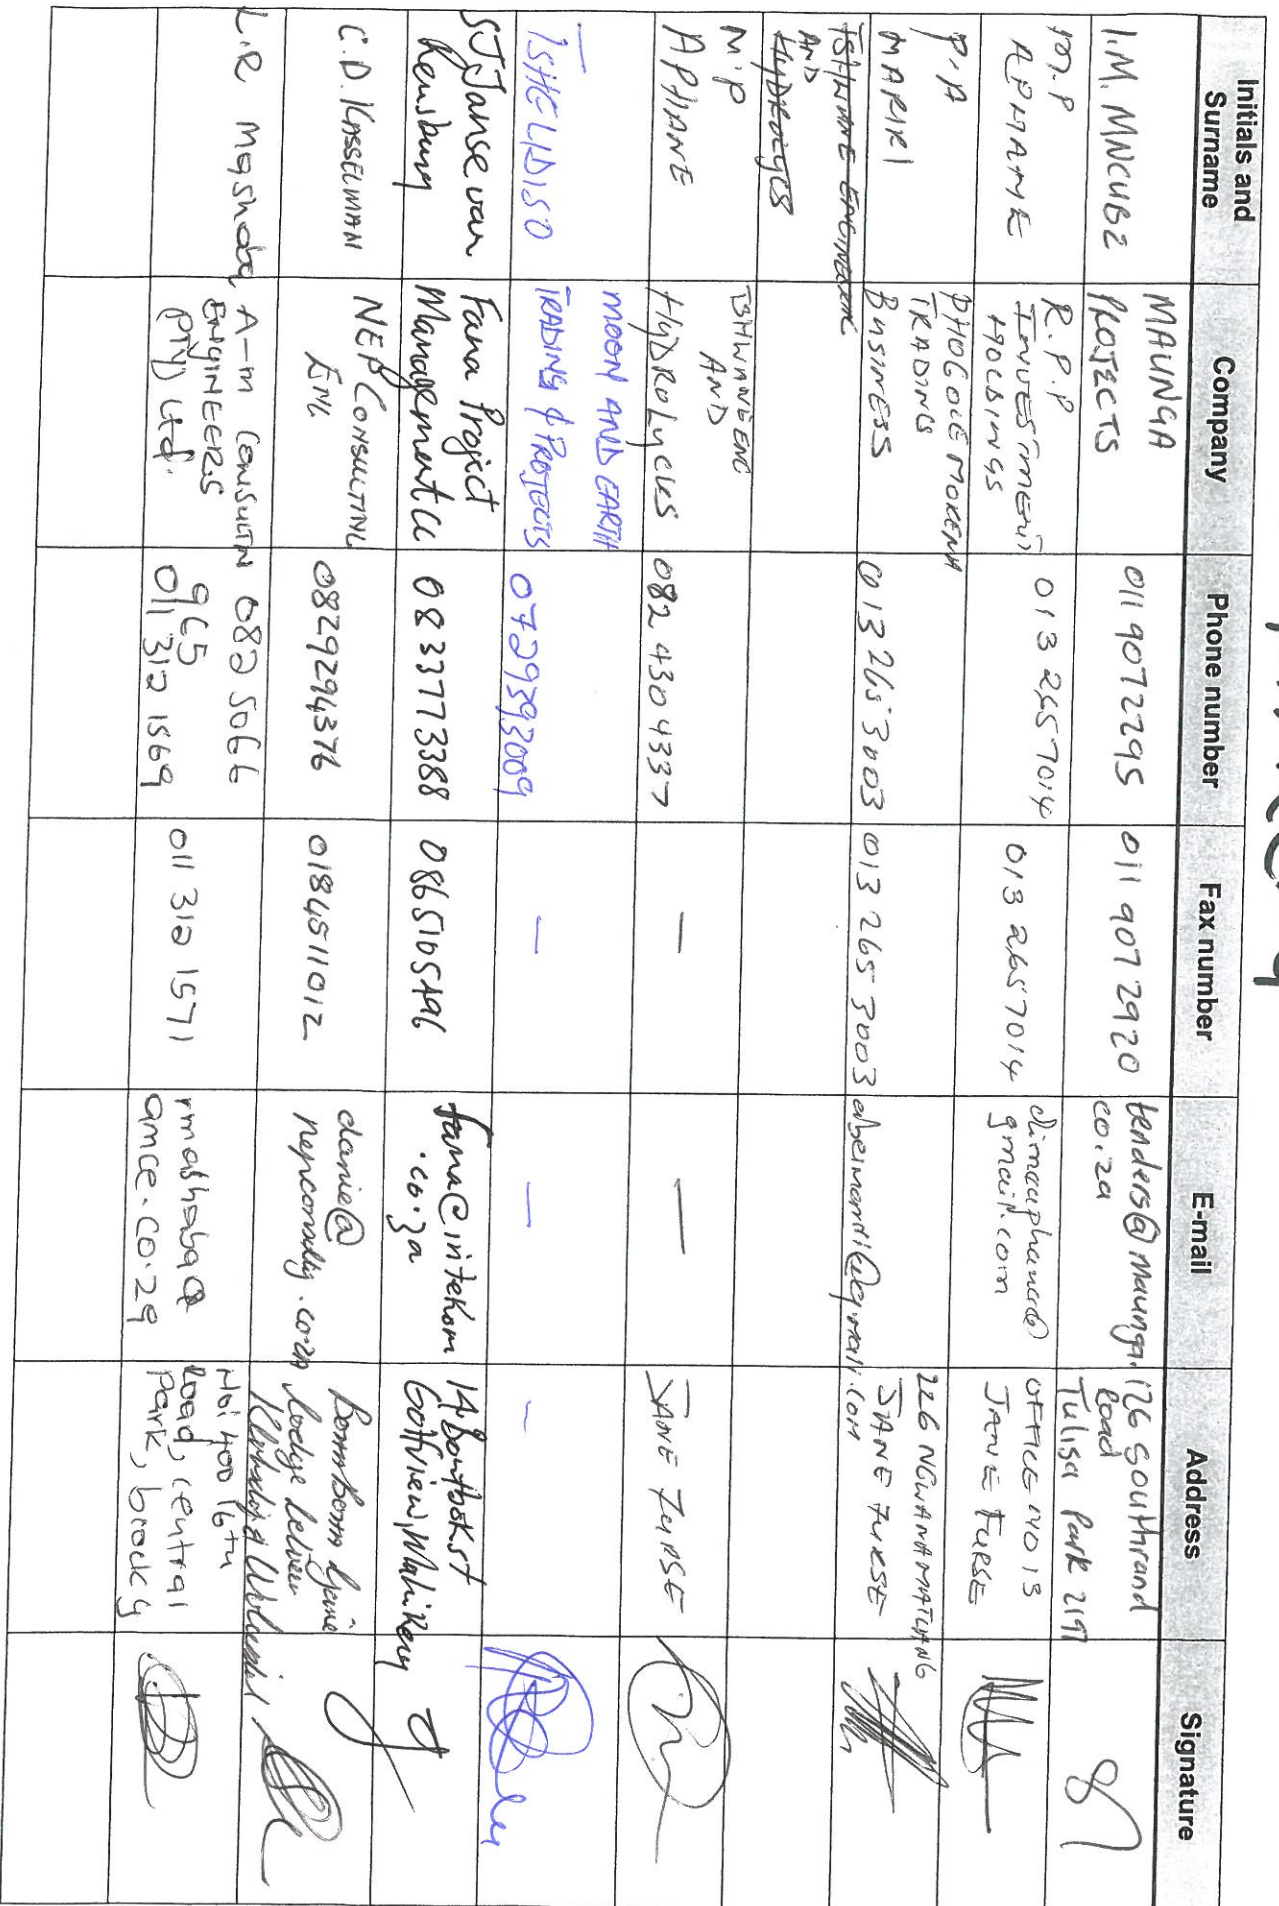 Initials and Surname
Company
Phone number
Fax number
E-mail
Address
Signature
I.M. MNCUBE
MAUNGA
PROJECTS
011 907 2295
011 907 2920
tenders@maunga.
co.za
126 Southrand
Road
Tulisa Park 2197
M.P
APHANE
R.P.P
INVESTMENT
HOLDINGS
013 265 7014
013 265 7014
gmail.com
OFFICE NO 13
JANE FURSE
P.A
MAPIRI
PHOGOLE MOKENA
TRADING
BUSINESS
013 265 3003
013 265 3003
226 NGWANAMATLANG
JANE FURSE
TSHWANE ENGINEERING
AND
HYDROLYCS
M.P
APHANE
TSHWANE ENG
AND
HYDROLYCKS
082 430 4337
—
—
JANE FURSE
TSHELIDISO
MOON AND EARTH
TRADING & PROJECTS
0729393009
—
—
—
SJ Janse van
Rensburg
Fana Project
Management cc
0833773388
0865105496
fama@intekom
.co.za
14 Bontbok st
Golfview, Mahikeng
C.D. KASSELMAN
NEP CONSULTING
ENG
0829294376
0184511012
danie@
nepconsulting.co.za
Bona Bona Game
lodge between
L.R Mashaba
A-M CONSULTING
ENGINEERS
(PTY) Ltd.
082 5066
965
011 312 1569
011 312 1571
rmashaba@
amce.co.za
No: 400 16th
Road, central
Park, block G